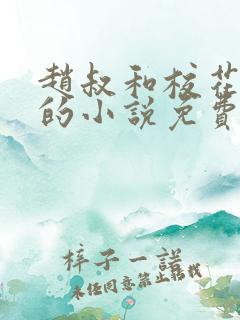 趙叔和校花
的小說免費
梓子一諾
未經同意禁止轉載